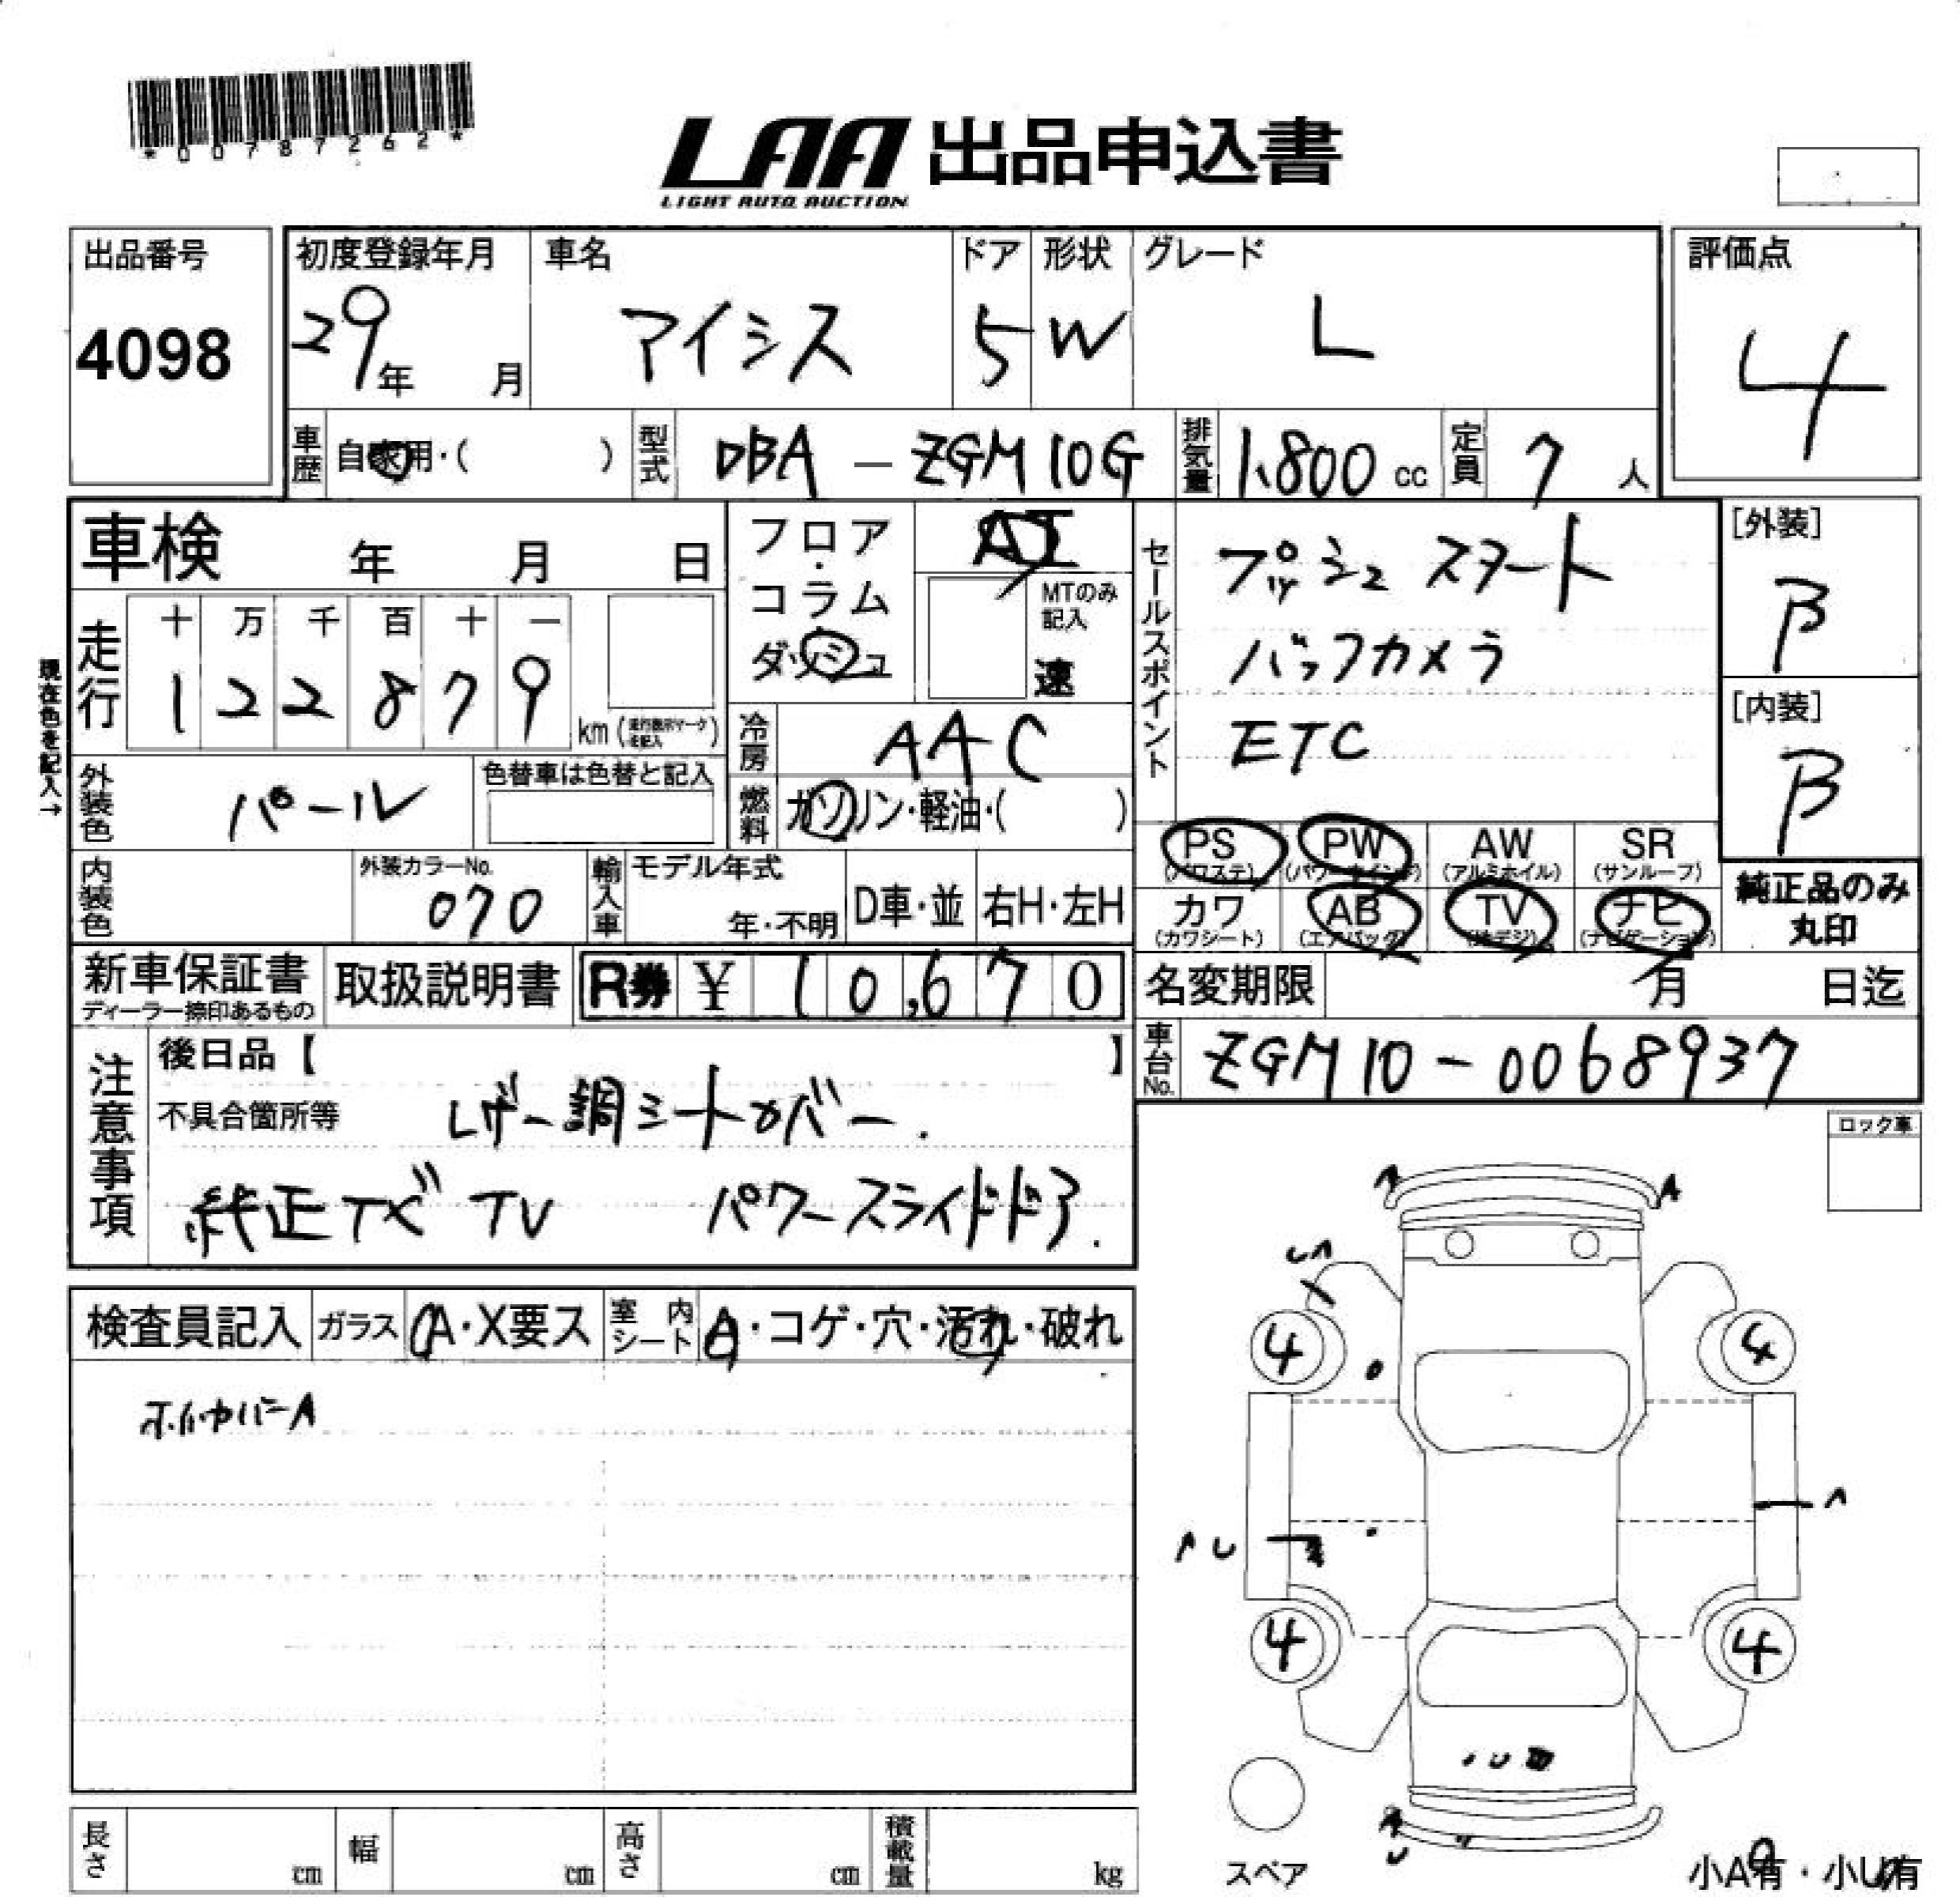 *00787262*
LAA 出品申込書
LIGHT AUTO AUCTION
出品番号
4098
初度登録年月
29年 月
車名
アイシス
ドア
5
形状
W
グレード
L
評価点
4
車歴
自家用・( )
型式
DBA - ZGM10G
排気量
1,800 cc
定員
7 人
車検 年 月 日
現在色を記入→
走行
十 万 千 百 十 一
1 2 2 8 7 9
km (走行表示マーク記入)
外装色
パール
色替車は色替と記入
内装色
外装カラーNo.
070
フロア・
コラム・
ダッシュ
AT
MTのみ記入
速
冷房
AAC
燃料
ガソリン・軽油・( )
輸入車
モデル年式
年・不明
D車・並
右H・左H
セールスポイント
プッシュ スタート
バックカメラ
ETC
[外装]
B
[内装]
B
PS
(パワステ)
PW
(パワーウインド)
AW
(アルミホイル)
SR
(サンルーフ)
カワ
(カワシート)
AB
(エアバック)
TV
(地デジ)
ナビ
(ナビゲーション)
純正品のみ
丸印
新車保証書
ディーラー捺印あるもの
取扱説明書
R券 ¥ 10,670
名変期限 月 日迄
車台No.
ZGM10-0068937
注意事項
後日品【 】
不具合箇所等
レザー調シートカバー.
純正ナビ TV パワースライドドア.
ロック車
検査員記入
ガラス
A・X要ス
室内シート
A・コゲ・穴・汚れ・破れ
ホイルカバーA
A
A
UA
4
4
A
AU
4
4
U
スペア
小A有・小U有
長さ cm
幅 cm
高さ cm
積載量 kg